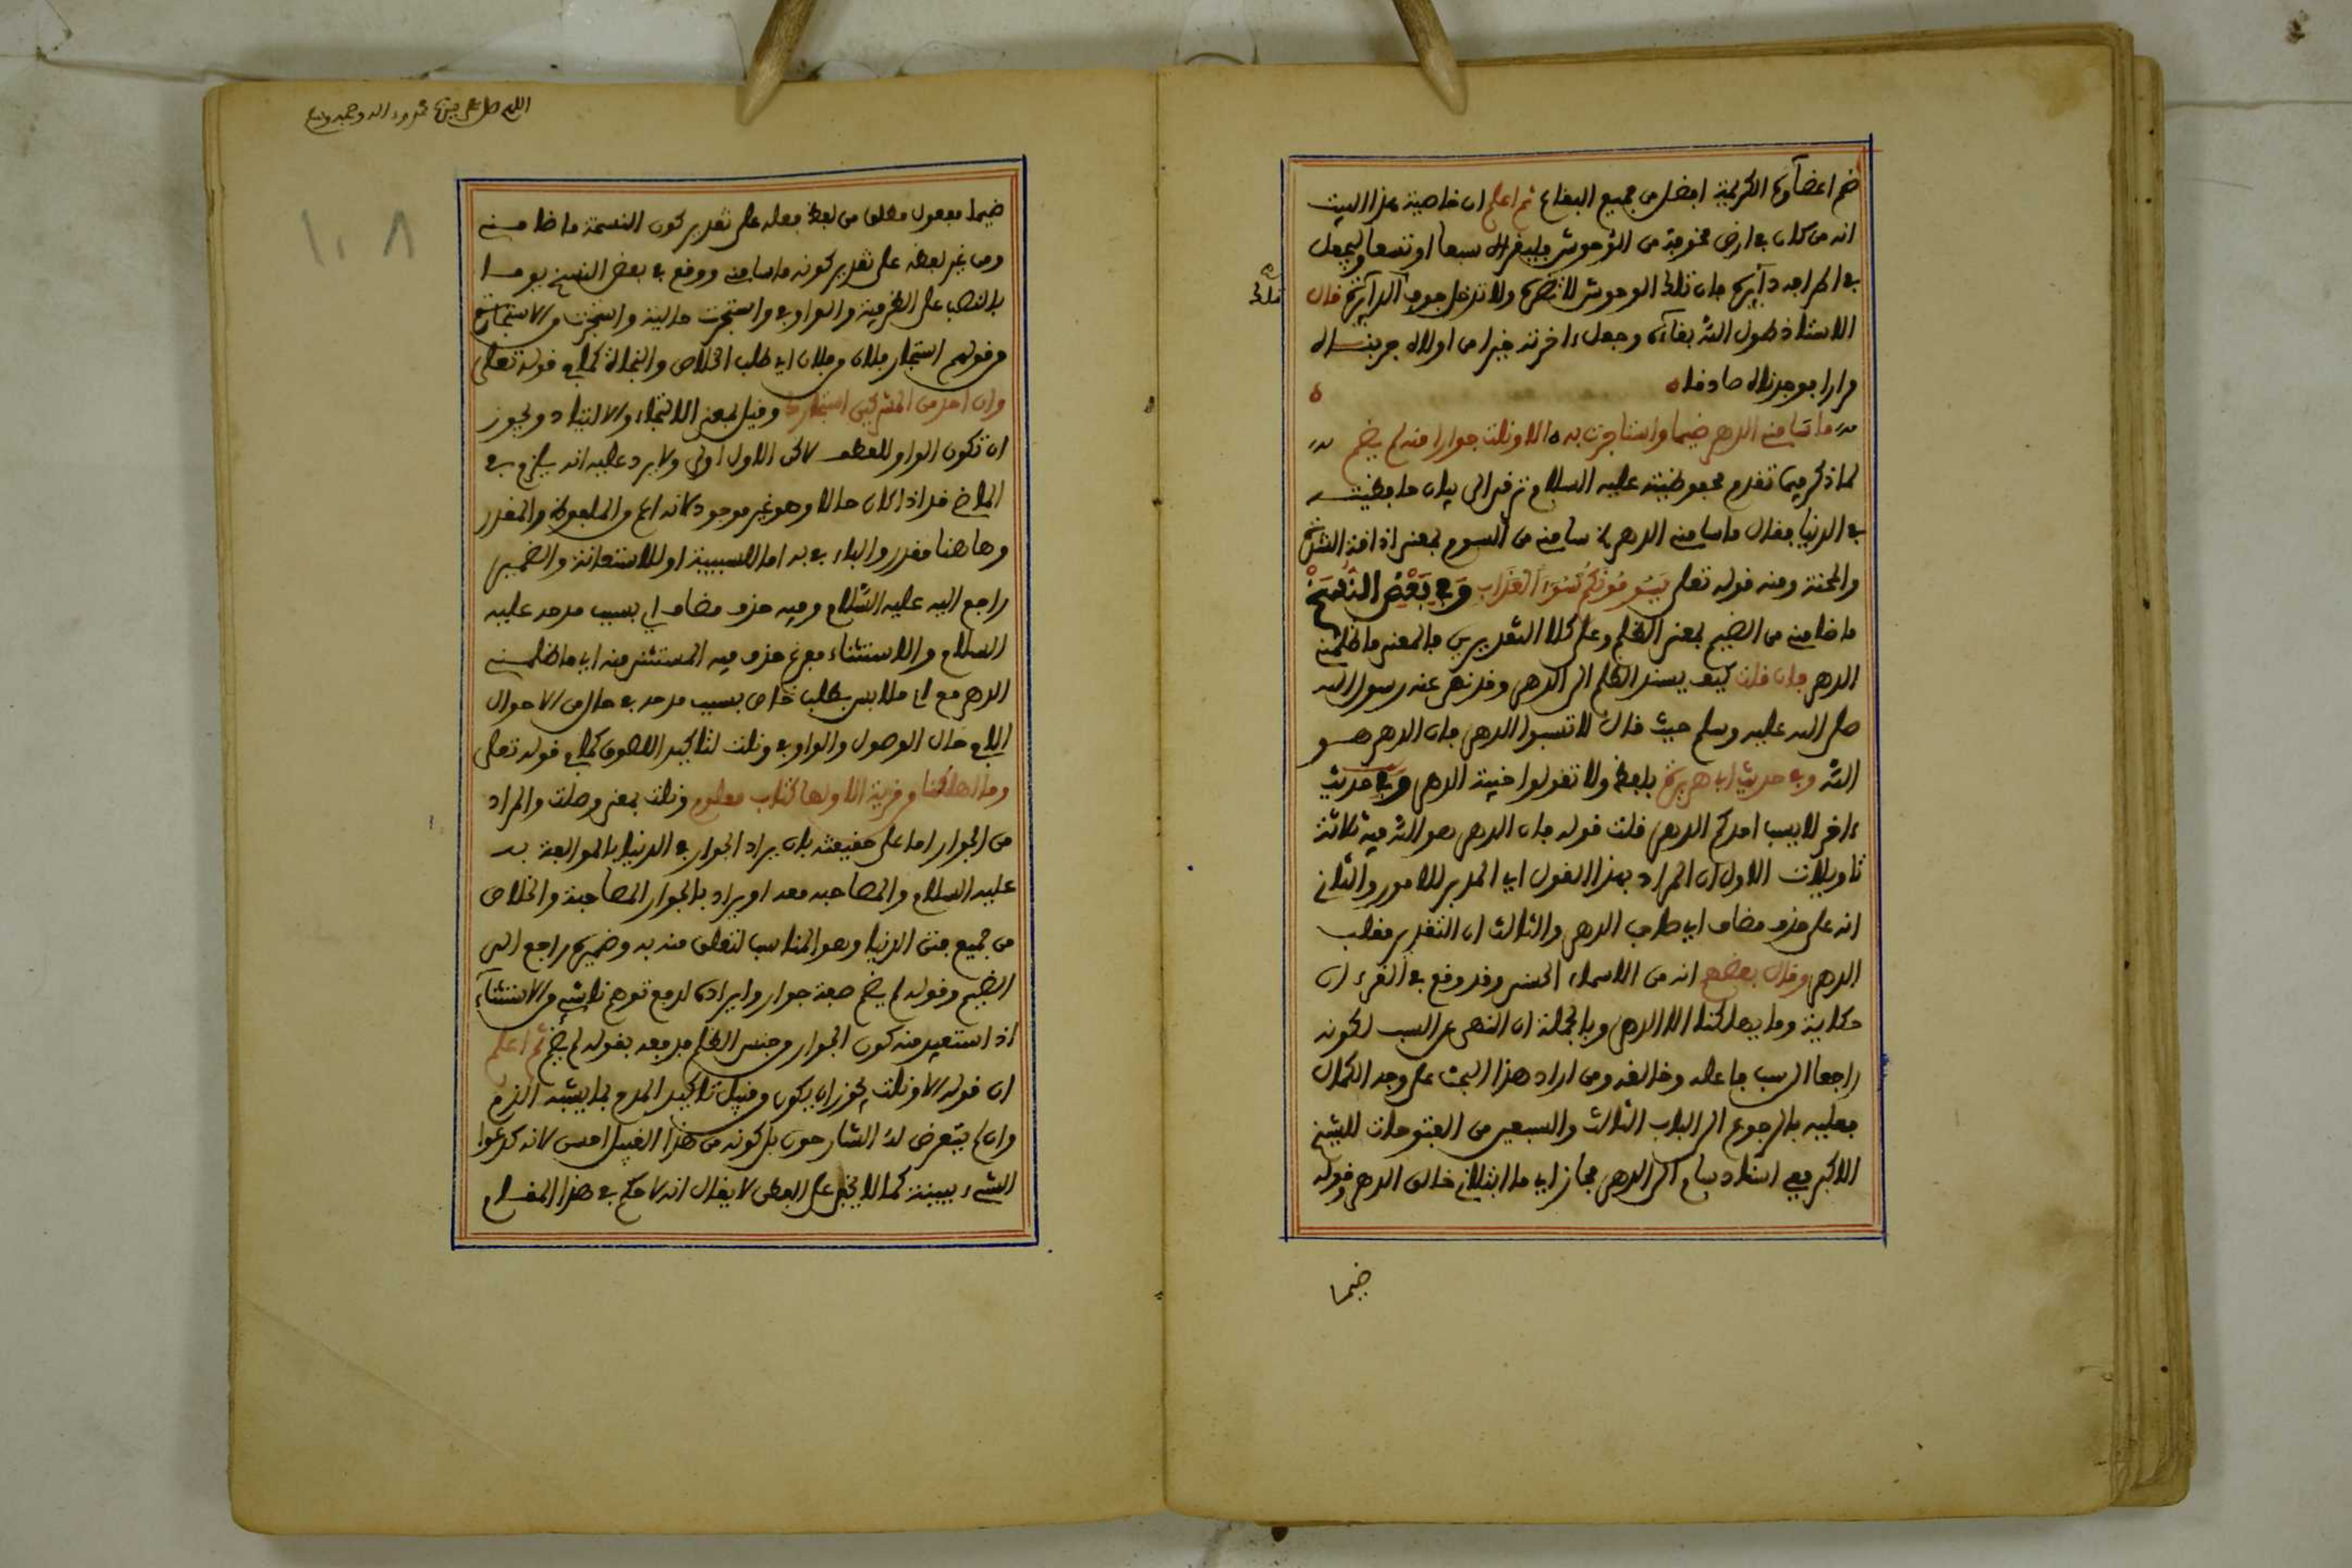 ضم اعضاءه الكريمة افضل من جميع البقاع ثم اعلم ان خاصية هذا البيت
انه من كان في ارض مخوفة من الوحوش فليقراه سبعا او تسعا وليجعل
في اطراحه دآيرة فان تلك الوحوش لا تضره ولا تدخل جوف الدآيرة قال
تلك
الاستاذ طول الله بقاءه وجعل ءاخرته خيرا من اولاه جربنــاه
مرارا فوجدناه صادقا ه
ما سامني الدهر ضيما واستجرت به ه الا ونلت جوارا منه لم يضم
لما ذكر فيما تقدم محبوبيته عليه السلام ترقى الى بيان
في الدنيا فقال ما سامني الدهر اي ساءمني من السوم بمعنى اذاقة الشدة
والمحنة ومنه قوله تعلى يَسُومُونَكُمْ سُوٓءَ الْعَذَابِ وَفِي بَعْضِ النُّسَخِ
ما ضامني من الضيم بمعنى الظلم وعلى كلا التقديرين فالمعنى ما ظلمني
الدهر فان قلت كيف يسند الظلم الى الدهر وقد نهى عنه رسول الله
صلى الله عليه وسلم حيث قال لا تسبوا الدهر فان الدهر هــو
الله وفي حديث ابي هريرة بلفظ ولا تقولوا خيبة الدهر وفي حديث
ءاخر لا يسب احدكم الدهر قلت قوله فان الدهر هو الله فيه ثلاثة
تاويلات الاول ان المراد بهذا القول اي المدبر للامور والثاني
انه على حذف مضاف اي صاحب الدهر والثالث ان التقدير مقلب
الدهر وقال بعضهم انه من الاسماء الحسنى وقد وقع في القرءان
حكاية وما يهلكنا الا الدهر وبالجملة ان النهي عن السب لكونه
راجعا الى سب فاعله وخالقه ومن اراد هذا البحث على وجه الكمال
فعليه بالرجوع الى الباب الثالث والسبعين من الفتوحات للشيخ
الاكبر ففي اسناد سام الى الدهر مجاز اي ما ابتلاني خالق الدهر وقوله
ضيما
اللهم صل على نبينا محمد وءاله وصحبه وسلم
١٠٨
ضيما مفعول مطلق من لفظ فعله على تقدير كون النسخة ما ضامــني
ومن غير لفظه على تقدير كونه ما سامني ووقع في بعض النسخ يومــا
بالنصب على الظرفية والواو في واستجرت حالية واستجرت من الاستجارة
من قولهم استجار فلان من فلان اي طلب الخلاص والنجاة كما في قوله تعلى
وان احد من المشركين استجارك وقيل بمعنى الالتجاء والالتياذ ويجوز
ان تكون الواو للعطف لاكن الاول اولى ولا يرد عليه انه يلزم في
الماضي قد اذا كان حالا وهو غير موجود لانه اعم من الملفوظ والمقدر
وهاهنا مقدر والباء في به اما للسببية او للاستعانة والضمير
راجع اليه عليه السلام وفيه حذف مضاف اي بسبب مدحه عليه
السلام والاستثناء مفرغ حذف فيه المستثنى منه اي ما ظلمــني
الدهر مع اني ملابس بطلب خاص بسبب مدحه في حال من الاحوال
الا في حال الوصول والواو في ونلت لتاكيد اللصوق كما في قوله تعلى
وما اهلكنا من قرية الا ولها كتاب معلوم ونلت بمعنى وصلت والمراد
من الجوار اما على حقيقته بان يراد الجوار في الدنيا بالموافقة بــه
عليه السلام والمصاحبة معه او يراد بالجوار المصاحبة والخلاص
من جميع فتن الدنيا وهو المناسب لتعلق منه به وضميره راجع الى
الضيم وقوله لم يضم صفة جوار وايراده لدفع توهم ناشئ من الاستثناء
اذ استفيد منه كون الجوار من جنس الظلم فدفعه بقوله لم يضم ثم اعلم
ان قوله الا ونلت يجوز ان يكون من قبيل تاكيد المدح بما يشبه الذم
وان لم يتعرض له الشارحون بل كونه من هذا القبيل احسن لانه كدعوى
الشيء ببينة كما لا يخفى على الفطن لا يقال انه لا حكم في هذا المقــام